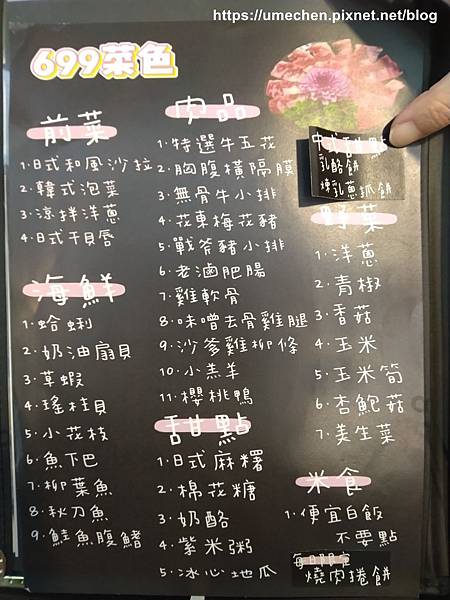 https://umechen.pixnet.net/blog
699菜色
前菜
1.日式和風沙拉
2.韓式泡菜
3.涼拌洋蔥
4.日式干貝唇
海鮮
1.蛤蜊
2.奶油扇貝
3.草蝦
4.瑤柱貝
5.小花枝
6.魚下巴
7.柳葉魚
8.秋刀魚
9.鮭魚腹鰭
肉品
1.特選牛五花
2.胸腹橫隔膜
3.無骨牛小排
4.花東梅花豬
5.戰斧豬小排
6.老滷肥腸
7.雞軟骨
8.味噌去骨雞腿
9.沙爹雞柳條
10.小羔羊
11.櫻桃鴨
甜點
1.日式麻糬
2.棉花糖
3.奶酪
4.紫米粥
5.冰心地瓜
中式甜點
乳酪餅
煉乳蔥抓餅
野菜
1.洋蔥
2.青椒
3.香菇
4.玉米
5.玉米筍
6.杏鮑菇
7.美生菜
米食
1.便宜白飯
不要點
每日限定
燒肉捲餅